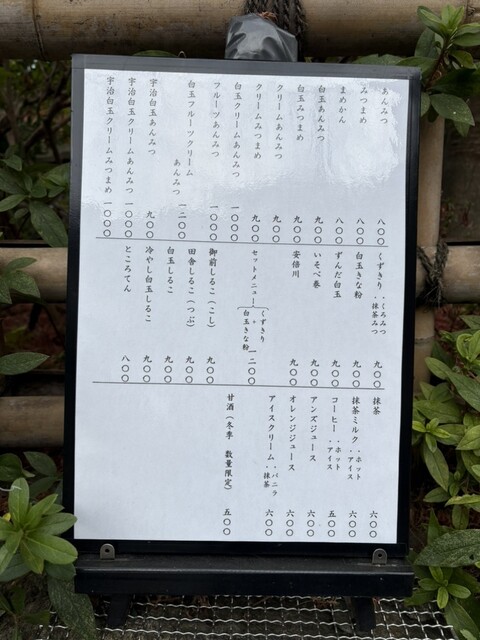 あんみつ 八〇〇
みつまめ 八〇〇
まめかん 八〇〇
白玉あんみつ 九〇〇
白玉みつまめ 九〇〇
クリームあんみつ 九〇〇
クリームみつまめ 九〇〇
白玉クリームあんみつ 一〇〇〇
フルーツあんみつ 一〇〇〇
白玉フルーツクリーム
あんみつ 一二〇〇
宇治白玉あんみつ 九〇〇
宇治白玉クリームあんみつ 一〇〇〇
宇治白玉クリームみつまめ 一〇〇〇
くずきり ・くろみつ
・抹茶みつ 九〇〇
白玉きな粉 九〇〇
ずんだ白玉 九〇〇
いそべ巻 九〇〇
安倍川 九〇〇
セットメニュー くずきり
+
白玉きな粉 一二〇〇
御前しるこ(こし) 九〇〇
田舎しるこ(つぶ) 九〇〇
白玉しるこ 九〇〇
冷やし白玉しるこ 九〇〇
ところてん 八〇〇
抹茶 六〇〇
抹茶ミルク ・ホット
・アイス 六〇〇
コーヒー ・ホット
・アイス 五〇〇
アンズジュース 六〇〇
オレンジジュース 六〇〇
アイスクリーム ・バニラ
・抹茶 六〇〇
甘酒(冬季 数量限定) 五〇〇